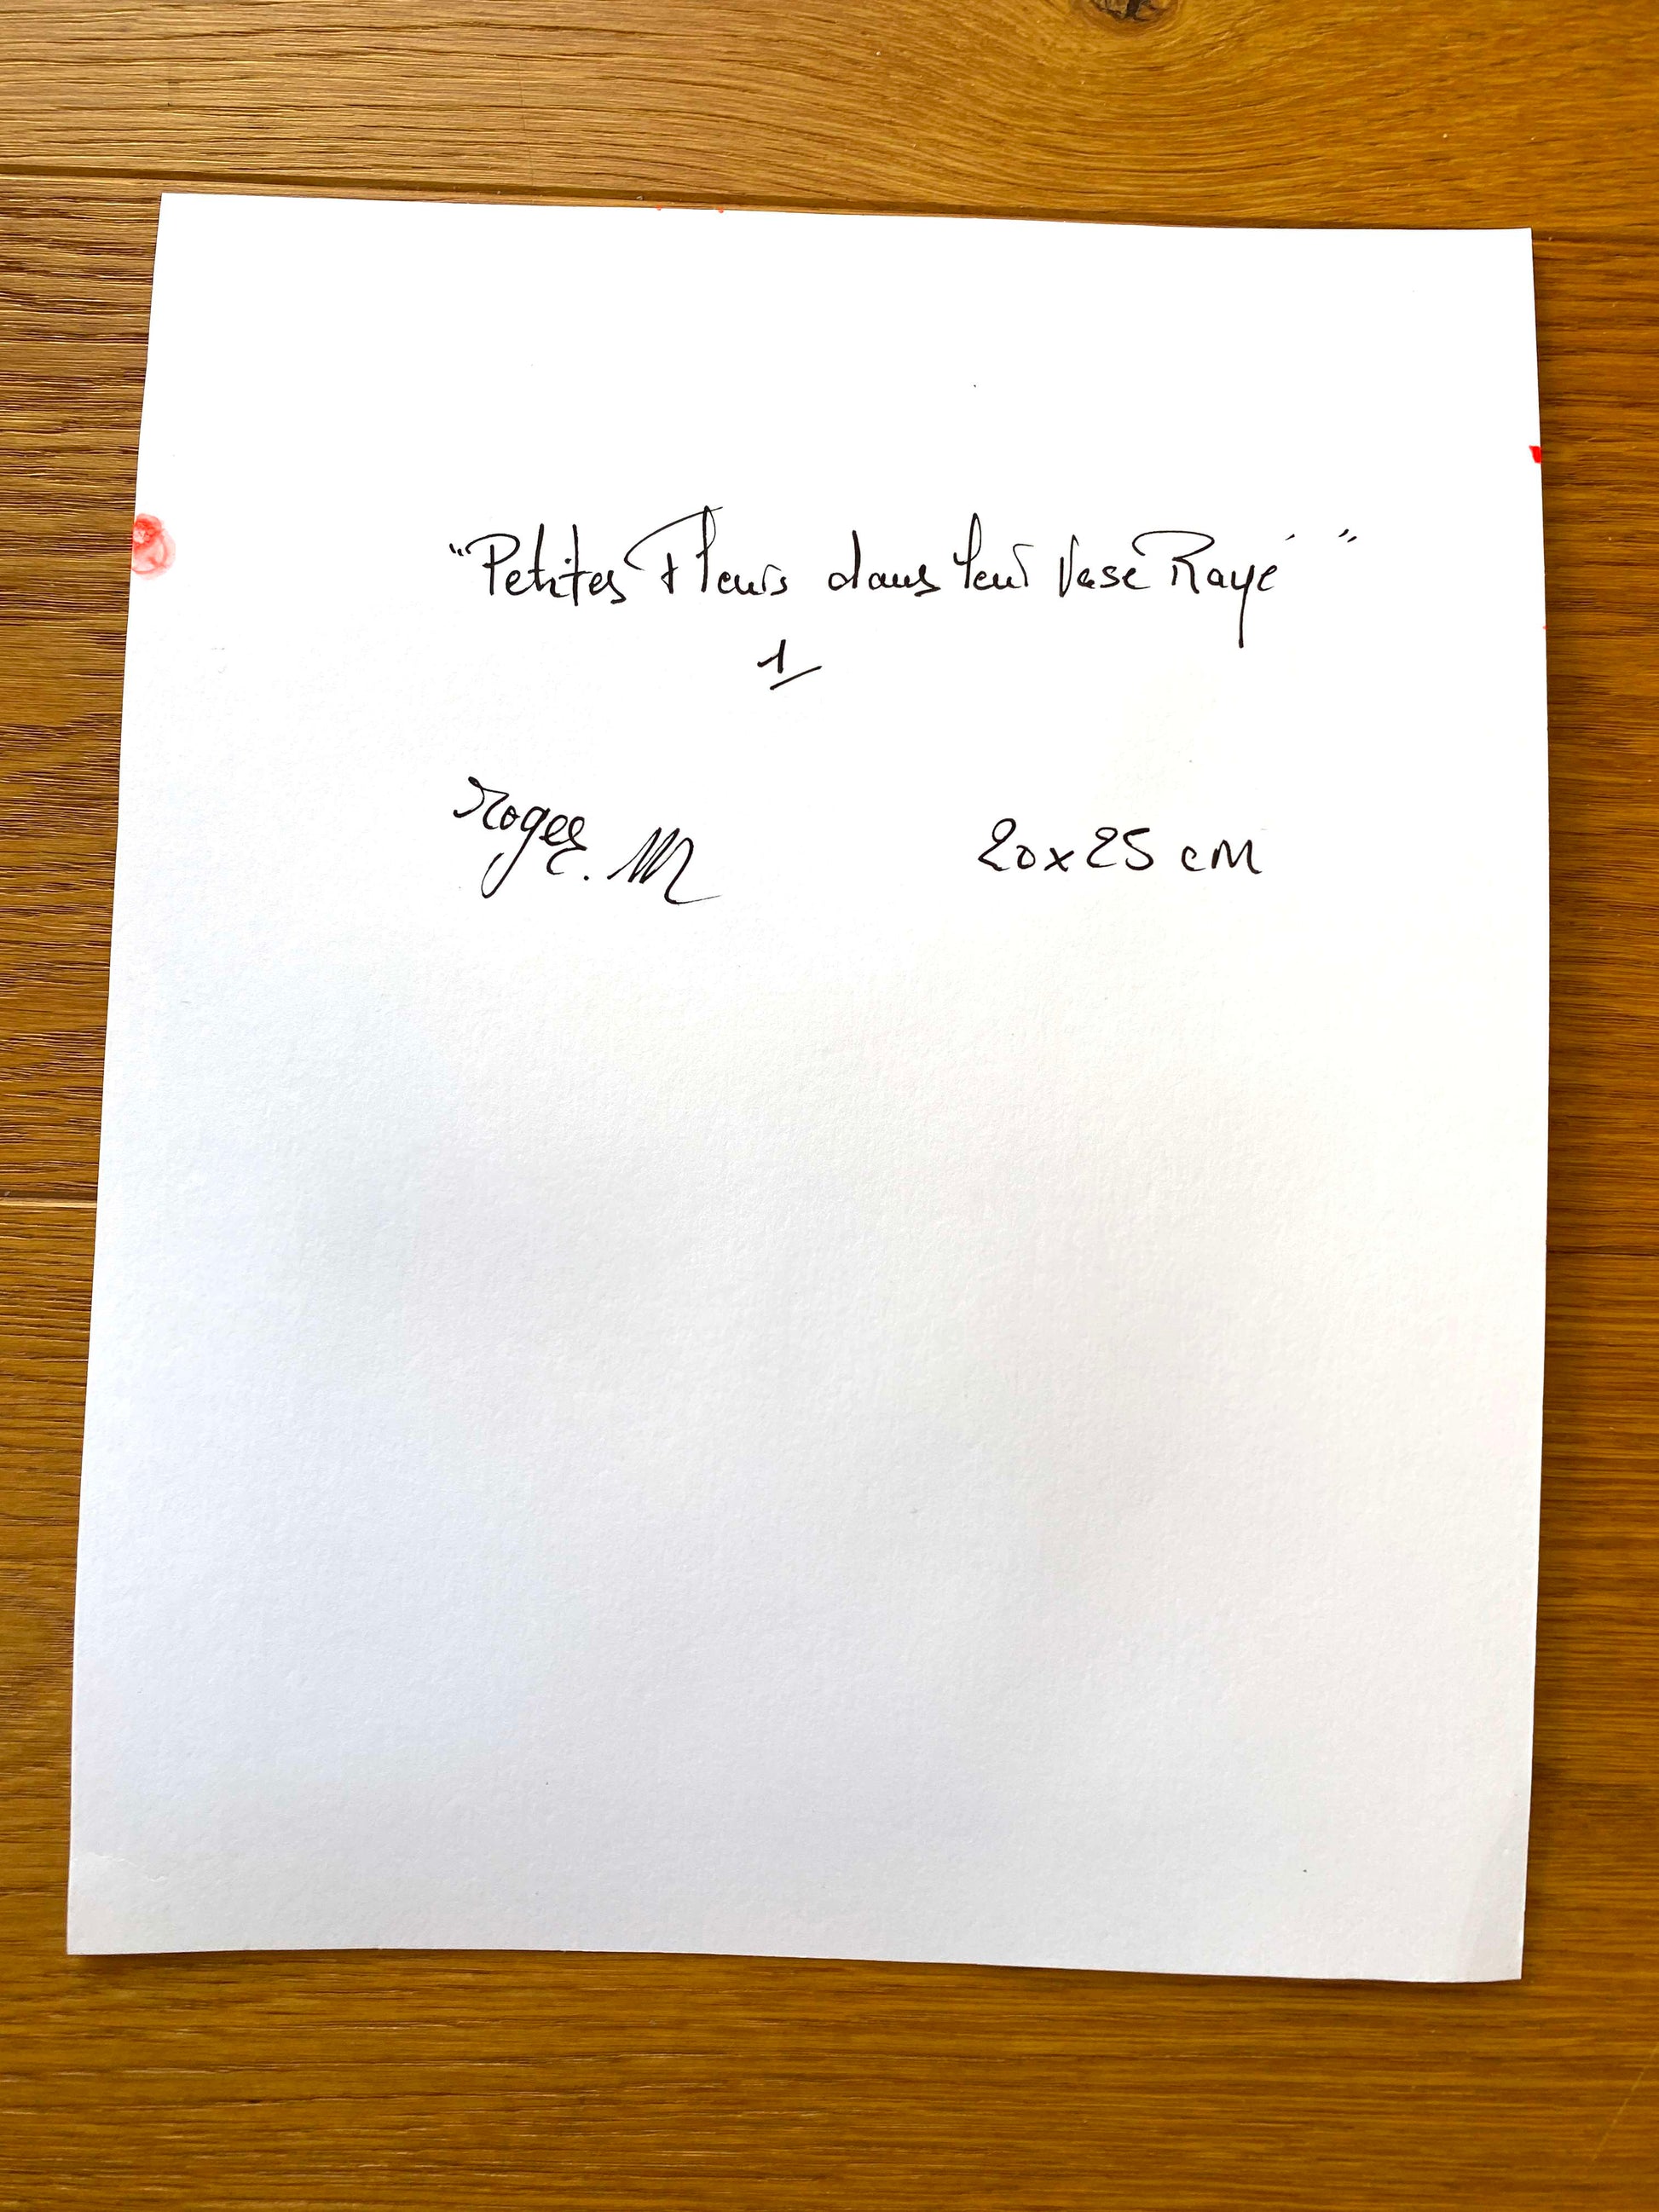 "Petites Fleurs dans leur Vase Rayé"
1
Roger. M
20x25 cM